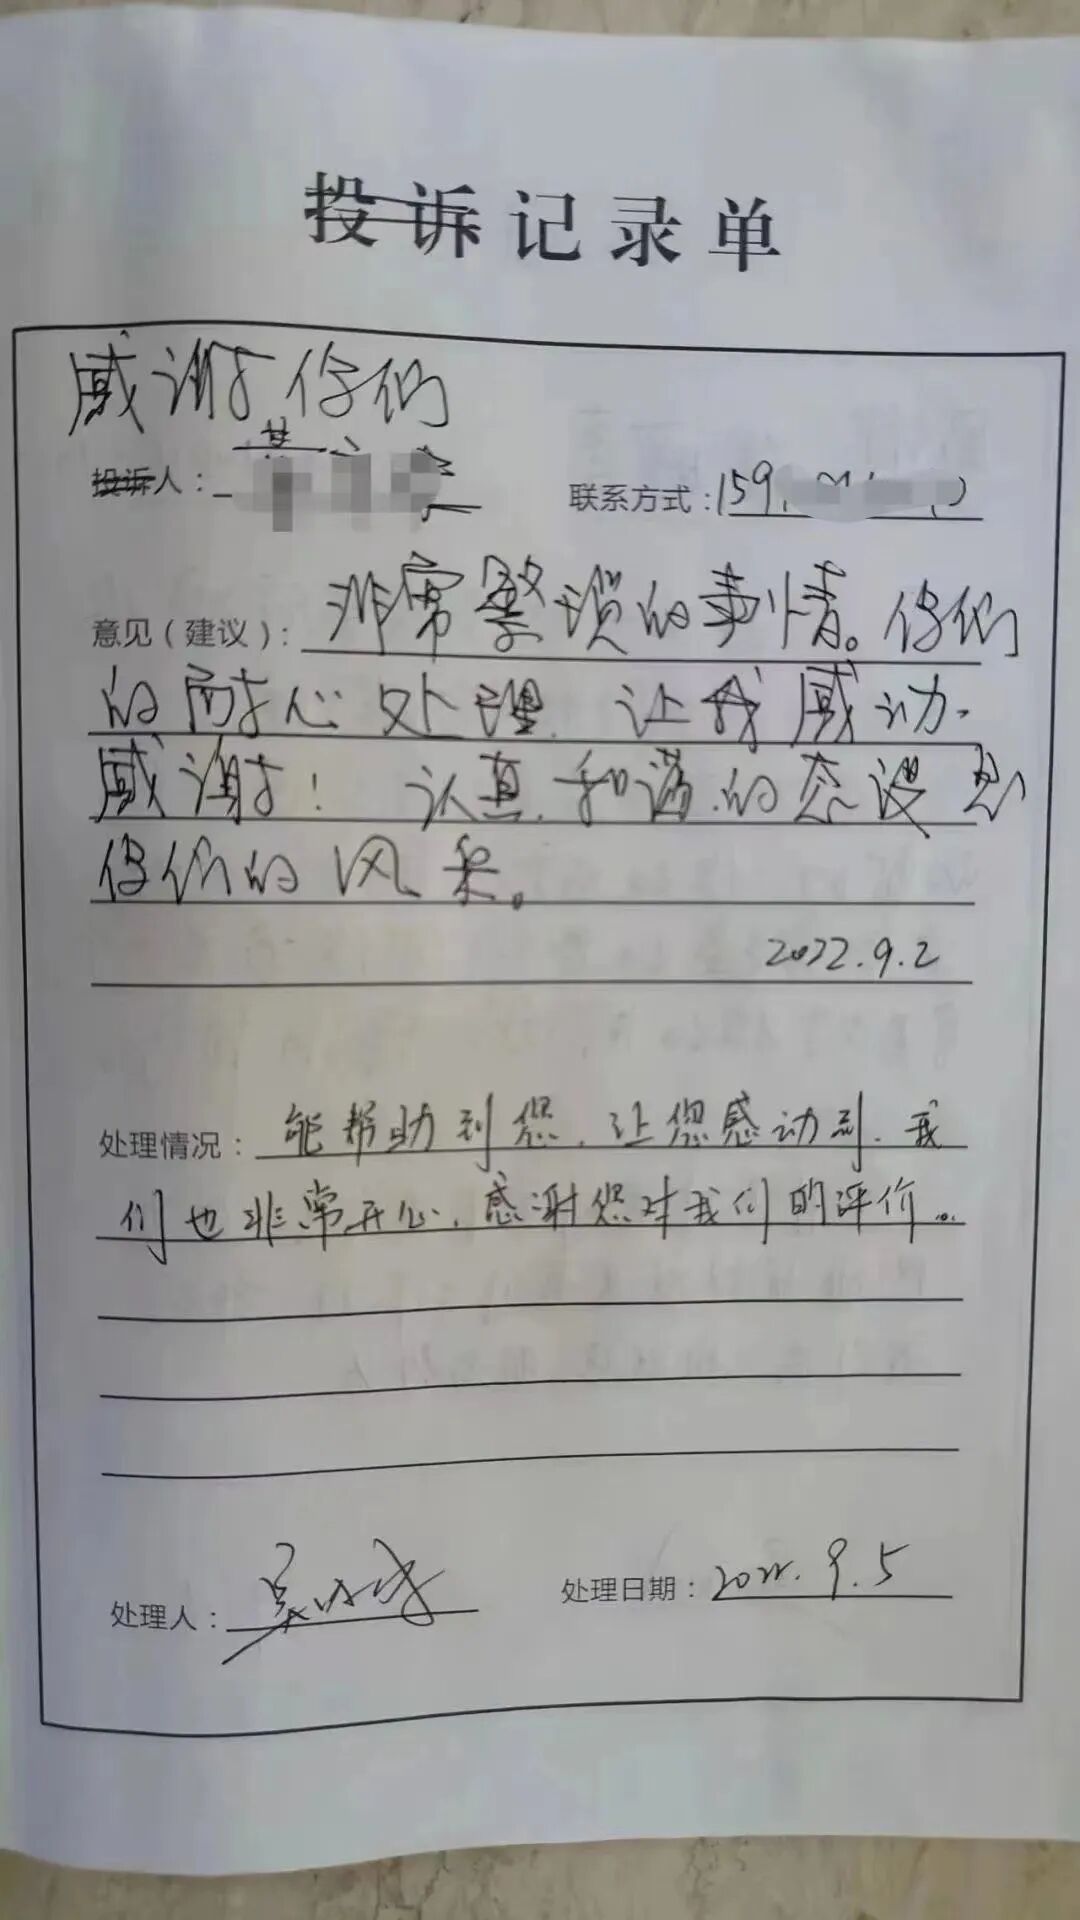 投诉记录单
感谢你们
投诉人:
联系方式:159
意见(建议): 非常繁琐的事情。你们
的耐心处理 让我感动.
感谢! 认真.和蔼.的态度
你们的风采。
2022.9.2
处理情况: 能帮助到您,让您感动到.我
们也非常开心,感谢您对我们的评价...
处理人:
处理日期: 2022.9.5